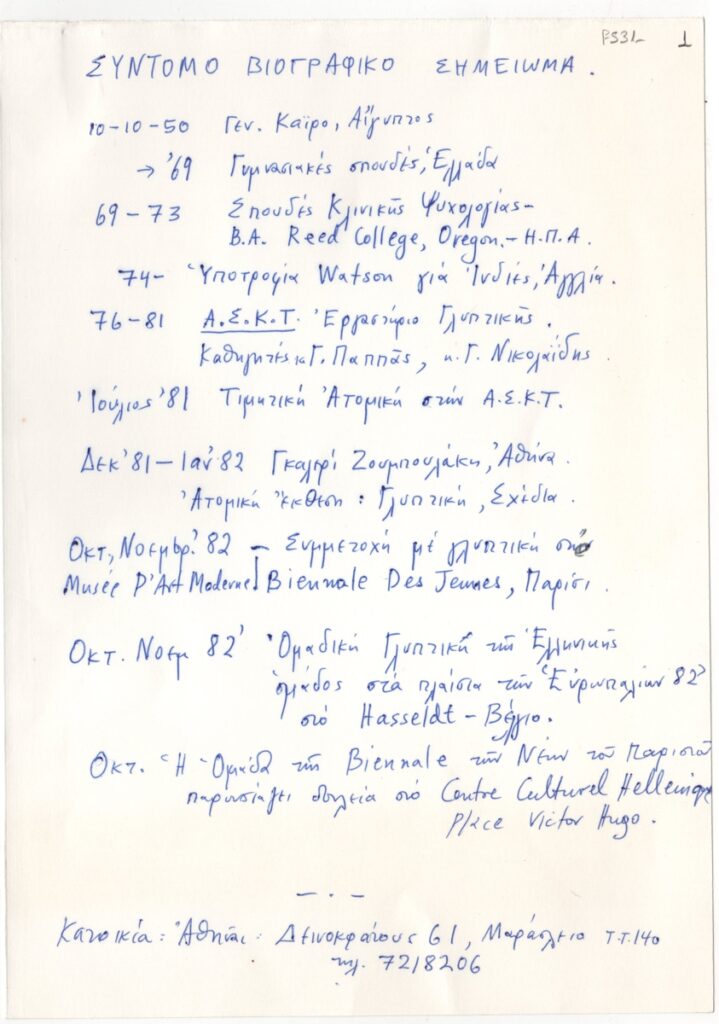 FS31 1
ΣΥΝΤΟΜΟ ΒΙΟΓΡΑΦΙΚΟ ΣΗΜΕΙΩΜΑ.
10-10-50 Γεν. Καΐρο, Αἴγυπτος
→ '69 Γυμνασιακές σπουδές, Ἑλλάδα
69-73 Σπουδές Κλινικῆς Ψυχολογίας-
B.A. Reed College, Oregon.- Η.Π.Α.
74- Ὑποτροφία Watson γιά Ἰνδίες, Ἀγγλία.
76-81 Α.Σ.Κ.Τ. Ἐργαστήριο Γλυπτικῆς.
Καθηγητές κ. Γ. Παππᾶς, κ. Γ. Νικολαΐδης.
Ἰούλιος '81 Τιμητική Ἀτομική στήν Α.Σ.Κ.Τ.
Δεκ '81-Ιαν '82 Γκαλερί Ζουμπουλάκη, Ἀθήνα.
Ἀτομική ἔκθεση: Γλυπτική, Σχέδια.
Οκτ, Νοεμβρ. '82 - Συμμετοχή μέ γλυπτική στην
Musée D'Art Moderne Biennale Des Jeunes, Παρίσι.
Οκτ. Νοεμ 82' Ὁμαδική Γλυπτική τῆς Ἑλληνικῆς
ὁμάδος στά πλαίσια τῶν Εὐρωπαλίων 82'
στό Hasseldt - Βέλγιο.
Οκτ. Ἡ Ὁμάδα τῆς Biennale τῶν Νέων τοῦ Παρισιοῦ
παρουσιάζει δουλεία στό Centre Culturel Hellenique
Place Victor Hugo.
— . —
Κατοικία: Ἀθῆναι: Δεινοκράτους 61, Μαράσλειο Τ.Τ.140
τηλ. 7218206